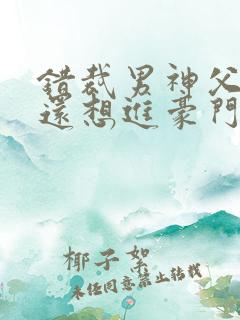 錯裁男神父
還想進豪門
椰子絮
未任同意禁止轉載